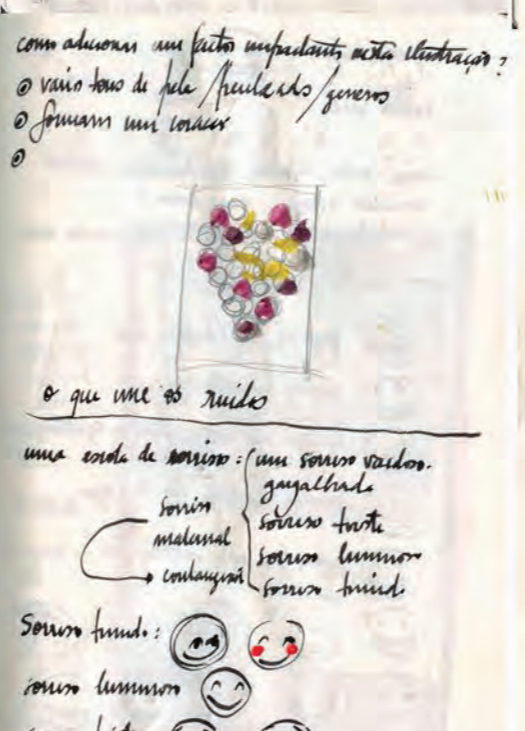 como adicionar um factor importante nesta ilustração?
o vários tons de pele / penteados / generos
o formam um coração
o
o que une os ruídos
uma escola de sorrisos: um sorriso vaidoso.
gargalhada
sorriso
maternal
contagioso
sorriso triste
sorriso luminoso
sorriso tímido
Sorriso tímido:
sorriso luminoso